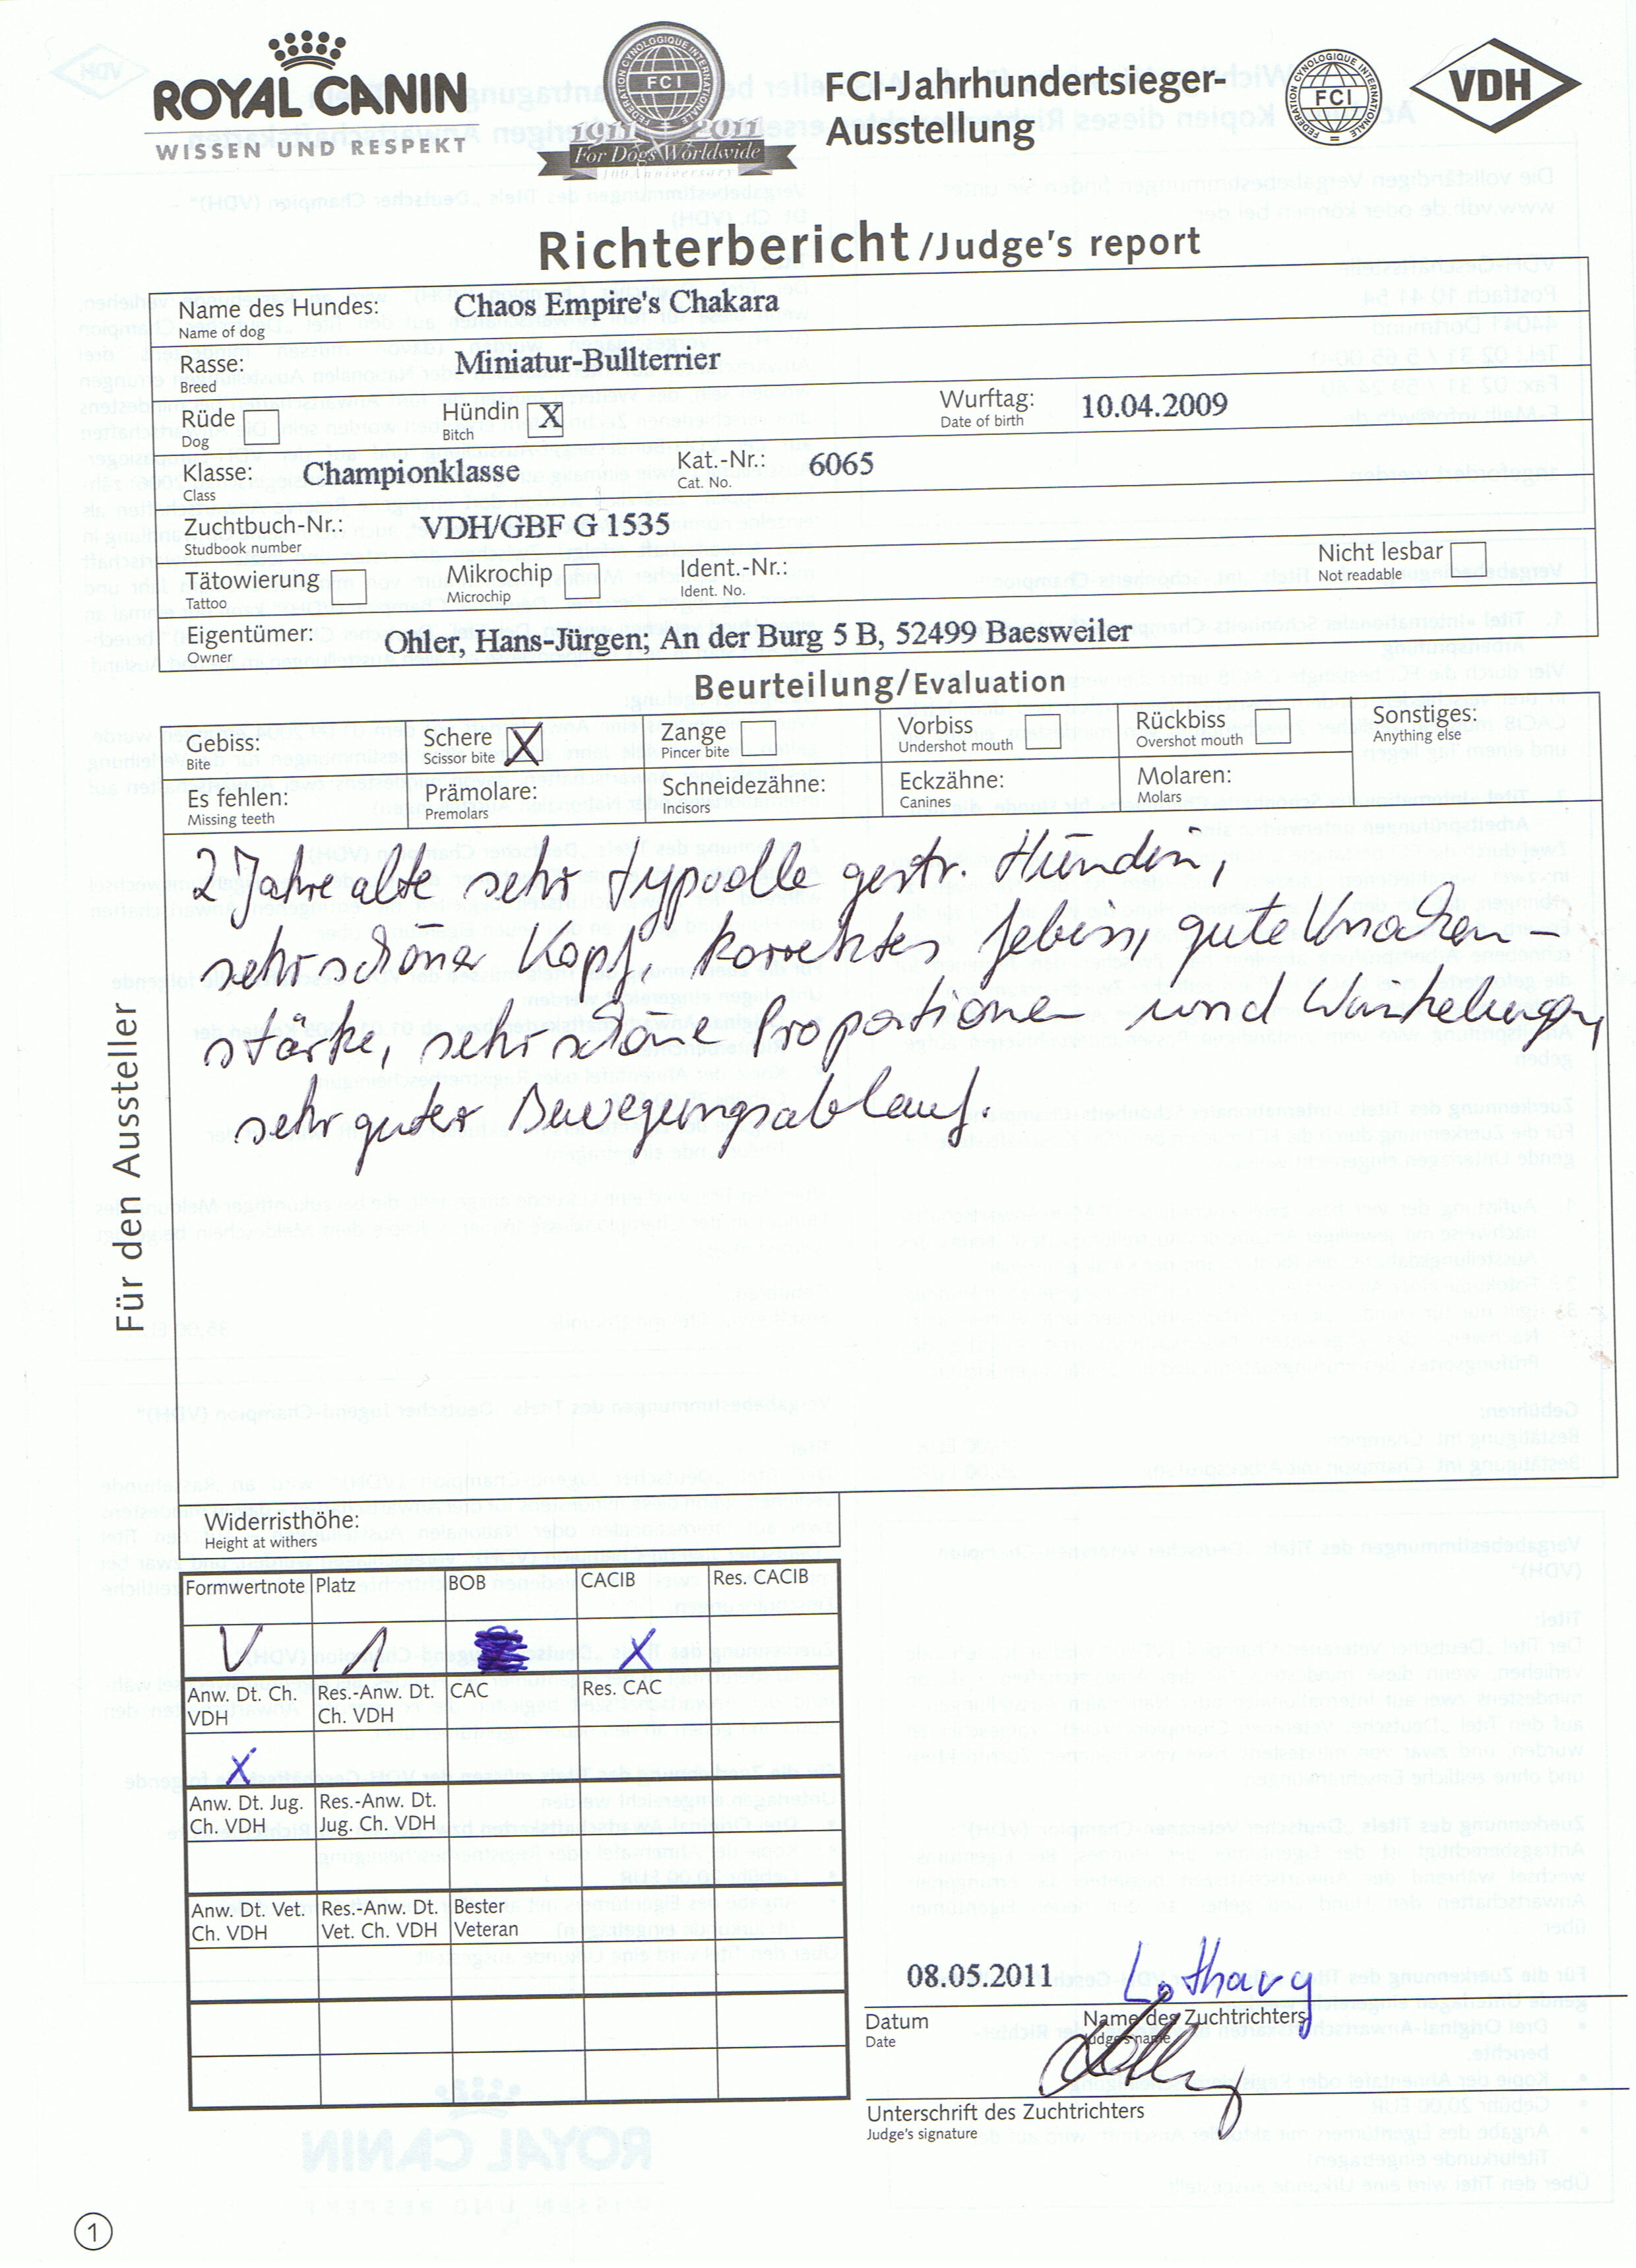 ROYAL CANIN
WISSEN UND RESPEKT
FEDERATION CYNOLOGIQUE INTERNATIONALE
FCI
1911 2011
For Dogs Worldwide
100 Anniversary
FCI-Jahrhundertsieger-
Ausstellung
FEDERATION CYNOLOGIQUE INTERNATIONALE
FCI
VDH
Richterbericht/Judge's report
Name des Hundes: Chaos Empire's Chakara
Name of dog
Rasse: Miniatur-Bullterrier
Breed
Rüde Hündin X Wurftag: 10.04.2009
Dog Bitch Date of birth
Klasse: Championklasse Kat.-Nr.: 6065
Class Cat. No.
Zuchtbuch-Nr.: VDH/GBF G 1535
Studbook number
Tätowierung Mikrochip Ident.-Nr.: Nicht lesbar
Tattoo Microchip Ident. No. Not readable
Eigentümer: Ohler, Hans-Jürgen; An der Burg 5 B, 52499 Baesweiler
Owner
Beurteilung/Evaluation
Gebiss: Schere X Zange Vorbiss Rückbiss Sonstiges:
Bite Scissor bite Pincer bite Undershot mouth Overshot mouth Anything else
Es fehlen: Prämolare: Schneidezähne: Eckzähne: Molaren:
Missing teeth Premolars Incisors Canines Molars
2 Jahre alte sehr typvolle gestr. Hündin,
sehr schöner Kopf, korrektes Gebiss, gute Knochen-
stärke, sehr schöne Proportionen und Winkelungen,
sehr guter Bewegungsablauf.
Für den Aussteller
Widerristhöhe:
Height at withers
Formwertnote Platz BOB CACIB Res. CACIB
V 1 X
Anw. Dt. Ch. Res.-Anw. Dt. CAC Res. CAC
VDH Ch. VDH
X
Anw. Dt. Jug. Res.-Anw. Dt.
Ch. VDH Jug. Ch. VDH
Anw. Dt. Vet. Res.-Anw. Dt. Bester
Ch. VDH Vet. Ch. VDH Veteran
08.05.2011 Lothary
Datum Name des Zuchtrichters
Date Judge's name
Unterschrift des Zuchtrichters
Judge's signature
1